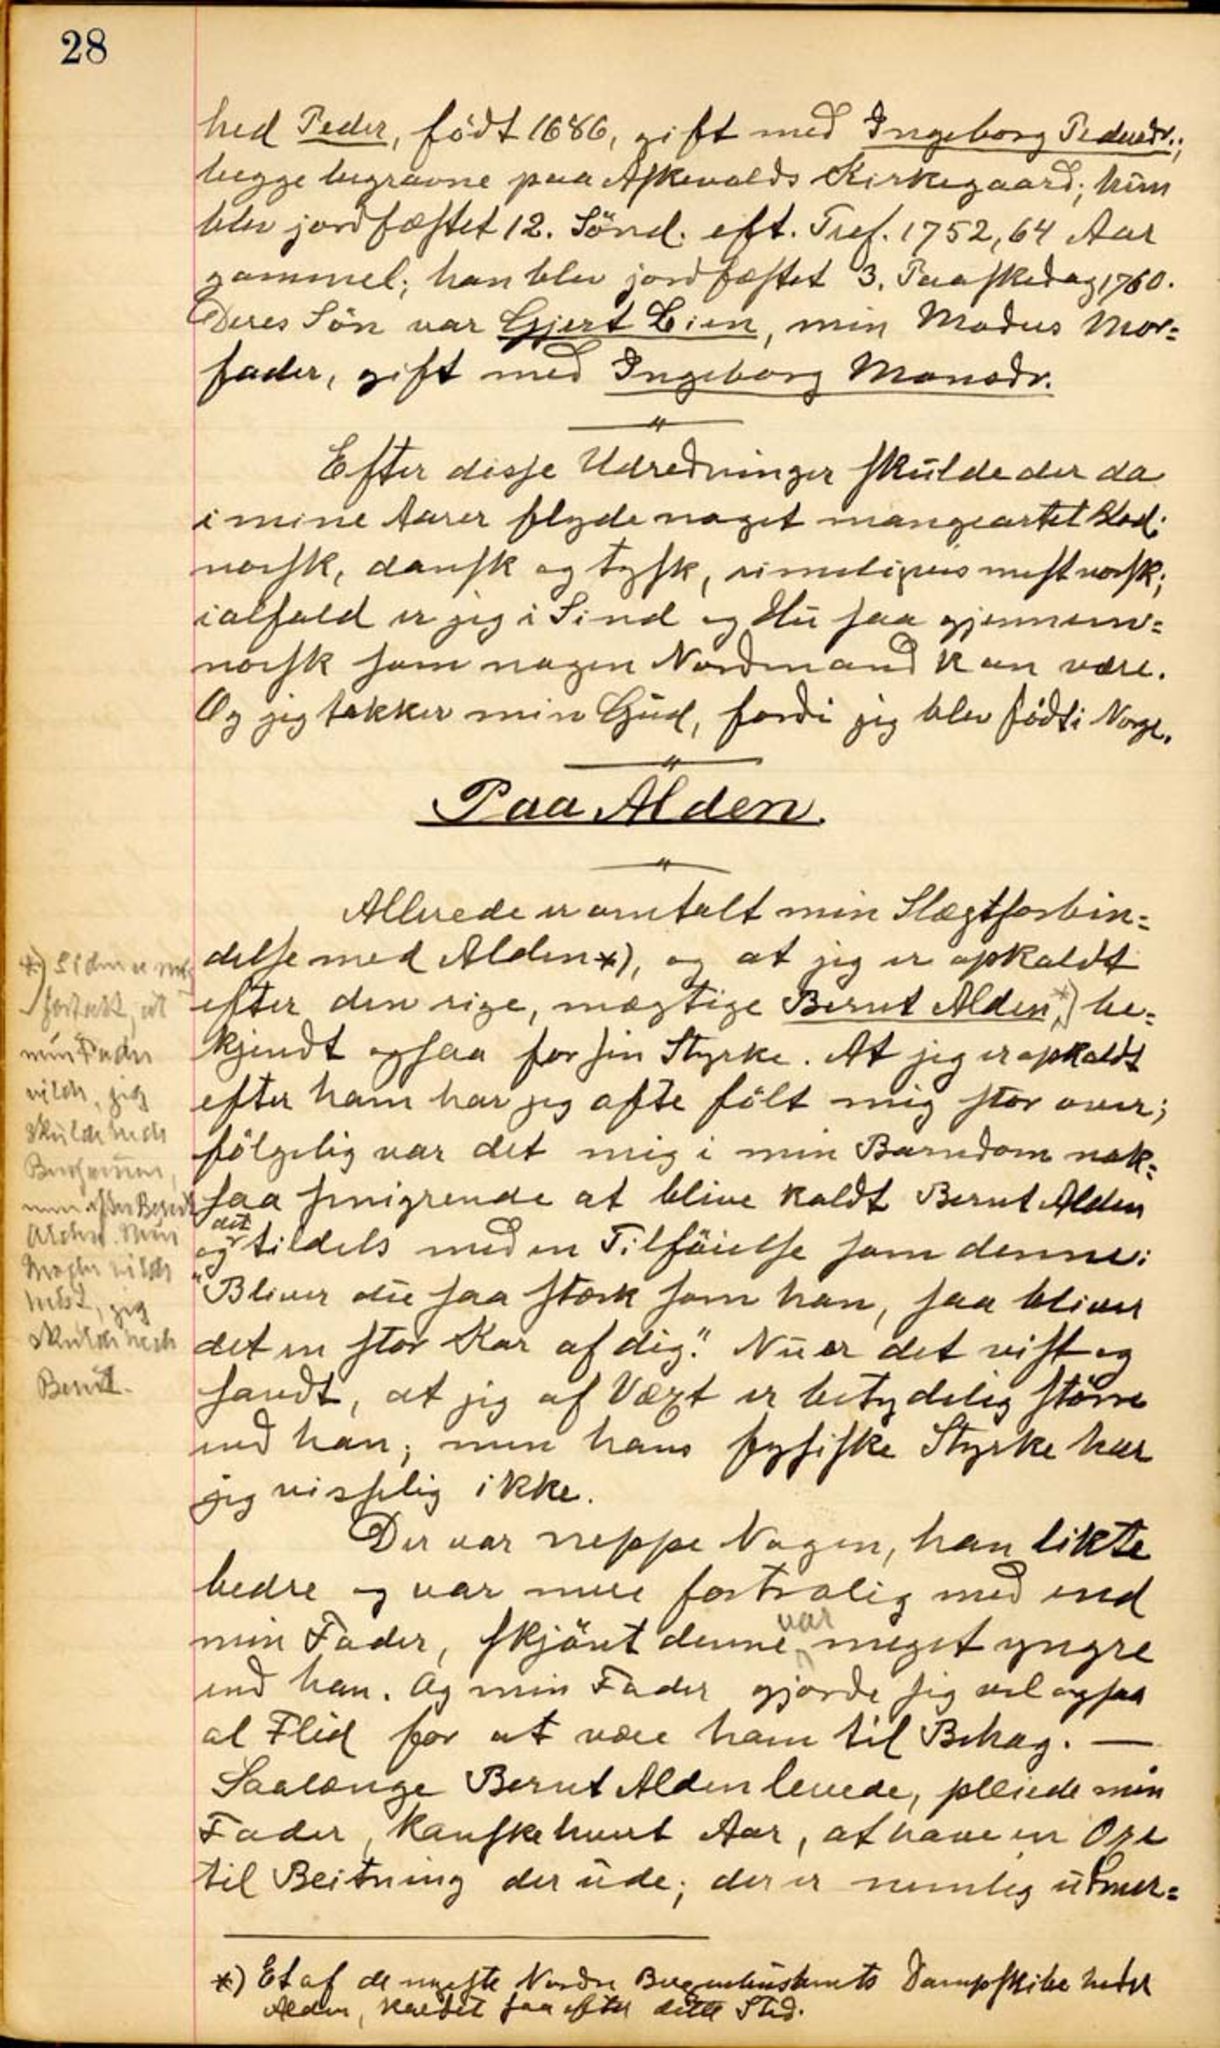 28
hed Peder, födt 1686, gift med Ingeborg Pedersdr.;
begge begravne paa Askevolds Kirkegaard; hun
blev jordfæstet 12. Sönd. eft. Tref. 1752, 64 Aar
gammel; han blev jordfæstet 3. Paaskedag 1760.
Deres Sön var Gjert Lien, min Moders Mor=
fader, gift med Ingeborg Monsdr.
Efter disse Udredninger skulde der da
i mine Aarer flyde noget mangeartet Blod:
norsk, dansk og tysk, rimeligvis mest norsk;
ialfald er jeg i Sind og Hu saa gjennem=
norsk som nogen Nordmand kan være.
Og jeg takker min Gud, fordi jeg blev födt i Norge.
Paa Alden.
Allerede er omtalt min Slægtforbin=
delse med Alden*), og at jeg er opkaldt
efter den rige, mægtige Bernt Alden*), be=
kjendt ogsaa for sin Styrke. At jeg er opkaldt
efter ham har jeg ofte fölt mig stor over;
fölgelig var det mig i min Barndom nok=
saa smigrende at blive kaldt Bernt Alden
og det tildels med en Tilföielse som denne:
"Bliver du saa stærk som han, saa bliver
det en stor Kar af dig." Nu er det vist og
sandt, at jeg af Væxt er betydelig större
end han; men hans fysiske Styrke har
jeg visselig ikke.
Der var neppe Nogen, han likte
bedre og var mere fortrolig med end
min Fader, skjönt denne var meget yngre
end han. Og min Fader gjorde sig vel ogsaa
al Flid for at være ham til Behag. —
Saalænge Bernt Alden levede, pleiede min
Fader, kanske hvert Aar, at have en Oxe
til Beitning der ude; der er nemlig udmer=
*) Et af de nyeste Nordre Bergenhusamts Dampskibe heder
Alden, kaldet saa efter dette Sted.
*)
fortalt, at
min Fader
vilde, jeg
skulde hede
men efter Bernt
Alden. Min
Moder vilde
helst, jeg
skulde hede
Bernt.